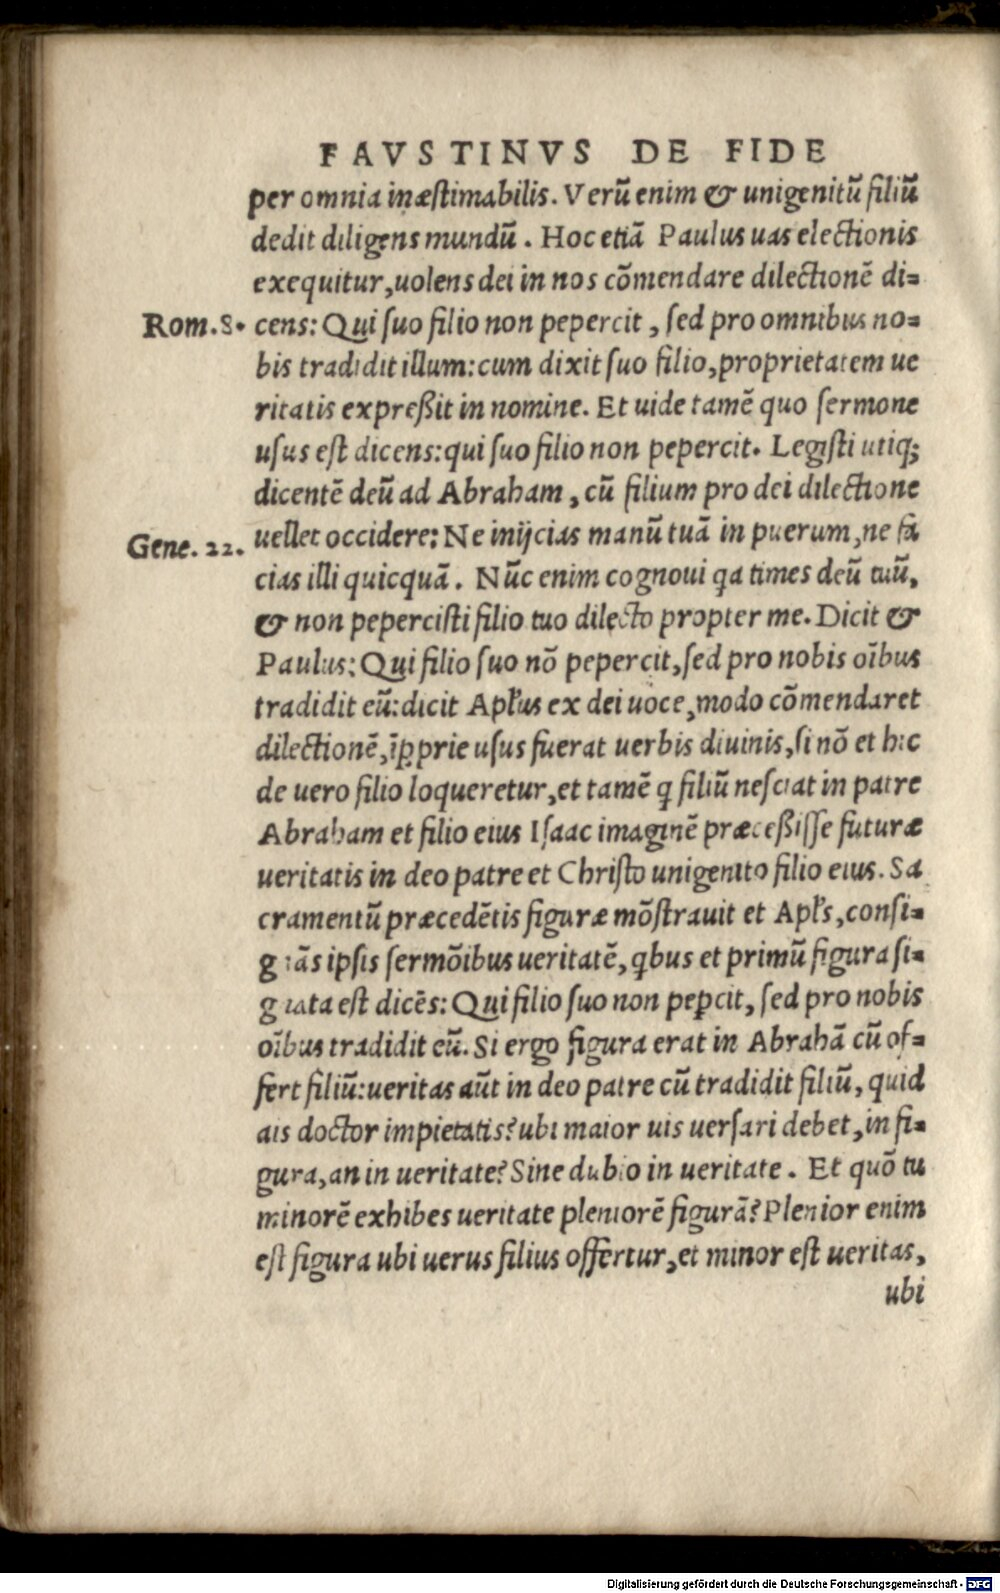 FAVSTINVS DE FIDE
per omnia inæstimabilis. Verũ enim & unigenitũ filiũ
dedit diligens mundũ. Hoc etiã Paulus uas electionis
exequitur, uolens dei in nos cõmendare dilectionẽ di=
Rom. 8. cens: Qui suo filio non pepercit, sed pro omnibus no=
bis tradidit illum: cum dixit suo filio, proprietatem ue
ritatis expreßit in nomine. Et uide tamẽ quo sermone
usus est dicens: qui suo filio non pepercit. Legisti utiq;
dicentẽ deũ ad Abraham, cũ filium pro dei dilectione
Gene. 22. uellet occidere: Ne inijcias manũ tuã in puerum, ne fa
cias illi quicquã. Nũc enim cognoui qa times deũ tuũ,
& non pepercisti filio tuo dilecto propter me. Dicit &
Paulus: Qui filio suo nõ pepercit, sed pro nobis oĩbus
tradidit eũ: dicit Apłus ex dei uoce, modo cõmendaret
dilectionẽ, ĩꝓprie usus fuerat uerbis diuinis, si nõ et hic
de uero filio loqueretur, et tamẽ q filiũ nesciat in patre
Abraham et filio eius Isaac imaginẽ præceßisse futuræ
ueritatis in deo patre et Christo unigenito filio eius. Sa
cramentũ præcedẽtis figuræ mõstrauit et Apłs, consi=
gnãs ipsis sermõibus ueritatẽ, qbus et primũ figura si=
gnata est dicẽs: Qui filio suo non peꝑcit, sed pro nobis
oĩbus tradidit eũ. Si ergo figura erat in Abrahã cũ of=
fert filiũ: ueritas aũt in deo patre cũ tradidit filiũ, quid
ais doctor impietatis? ubi maior uis uersari debet, in fi=
gura, an in ueritate? Sine dubio in ueritate. Et quõ tu
minorẽ exhibes ueritate pleniorẽ figurã? Plenior enim
est figura ubi uerus filius offertur, et minor est ueritas,
ubi
Digitalisierung gefördert durch die Deutsche Forschungsgemeinschaft - DFG